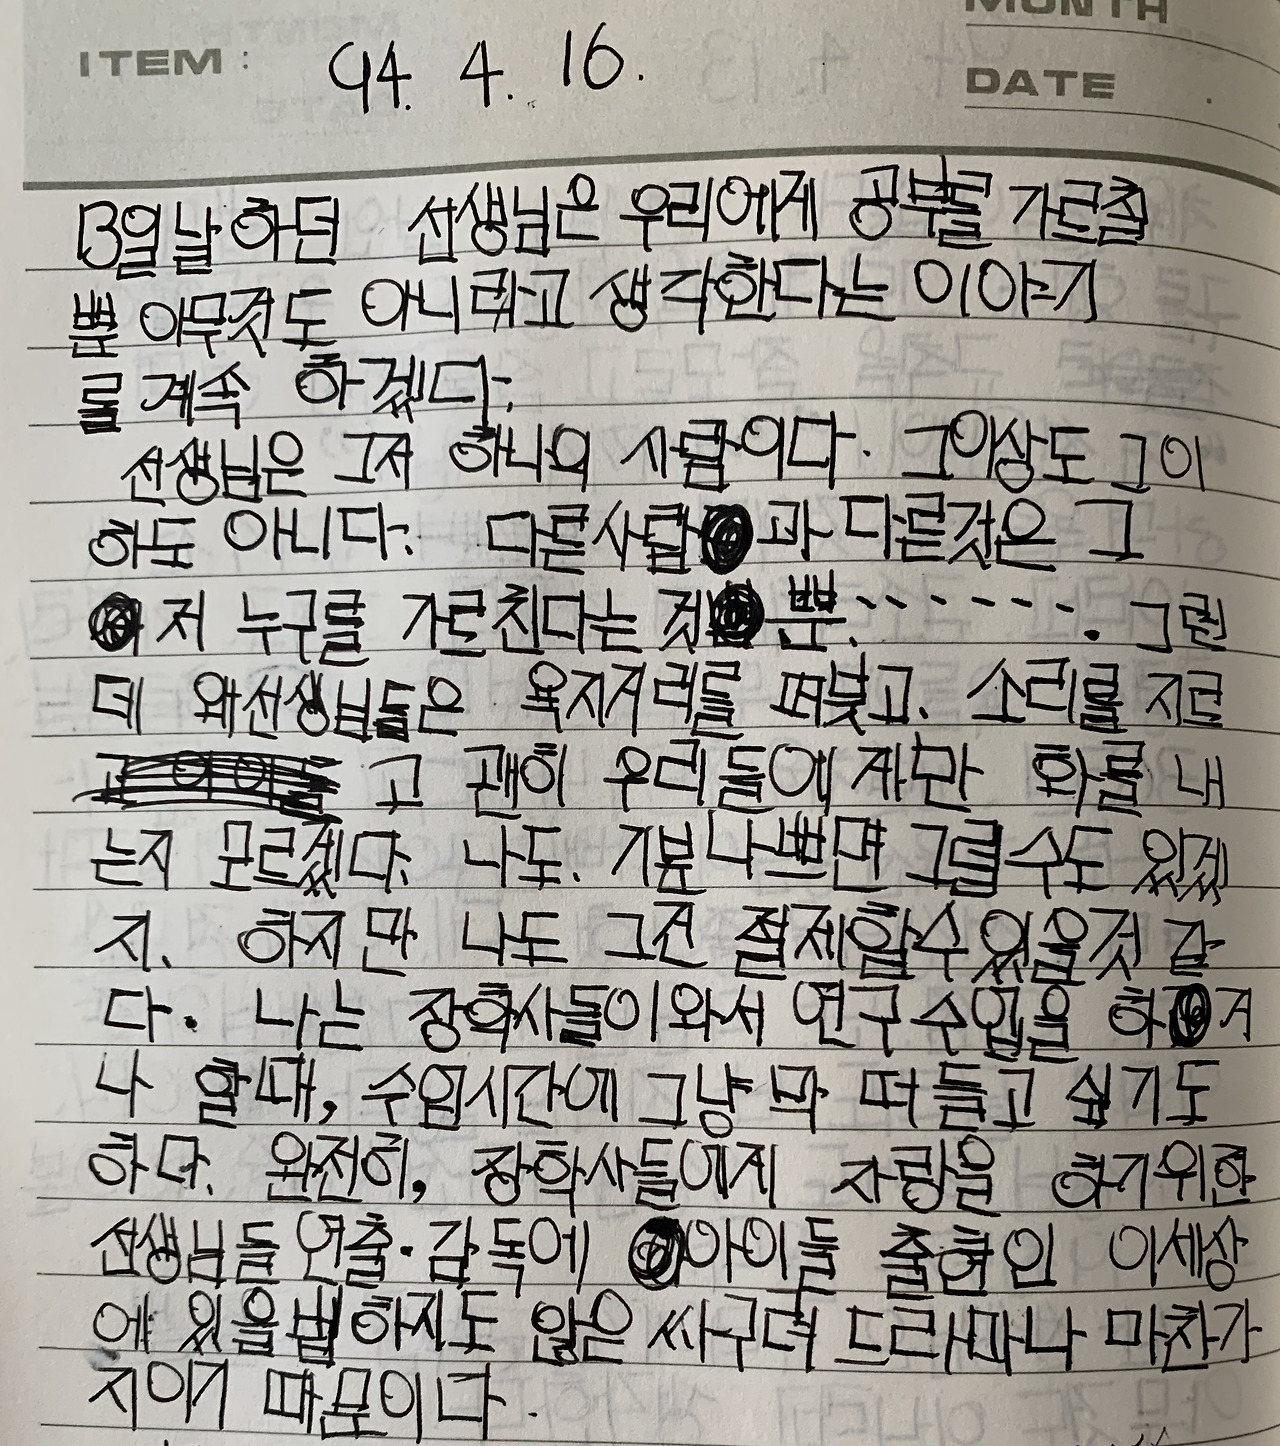 MONTH
ITEM : 94. 4. 16.
DATE
13일날 하던 선생님은 우리에게 공부를 가르칠
뿐 아무것도 아니라고 생각한다는 이야기
를 계속 하겠다.
선생님은 그저 하나의 사람이다. 그이상도 그이
하도 아니다. 다른사람과 다른것은 그
저 누구를 가르친다는 것 뿐.------. 그런
데 왜선생님들은 욕지거리를 퍼붓고, 소리를 지르
고 괜히 우리들에게만 화를 내
는지 모르겠다. 나도. 기분나쁘면 그럴수도 있겠
지. 하지만 나도 그건 절제할수 있을것 같
다. 나는 장학사들이와서 연구수업을 하거
나 할때, 수업시간에 그냥 막 떠들고 싶기도
하다. 완전히, 장학사들에게 자랑을 하기위한
선생님들 연출·감독에 아이들 출현인 이세상
에 있을법하지도 않은 싸구려 드라마나 마찬가
지이기 때문이다.